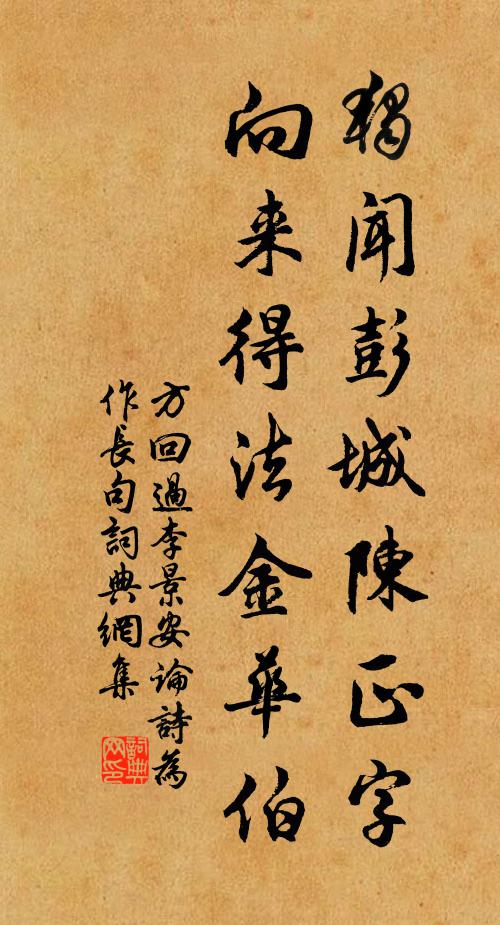 獨聞彭城陳正字
向来得法金華伯
方回過李景安論詩為
作長句詞典網集
詞典网印